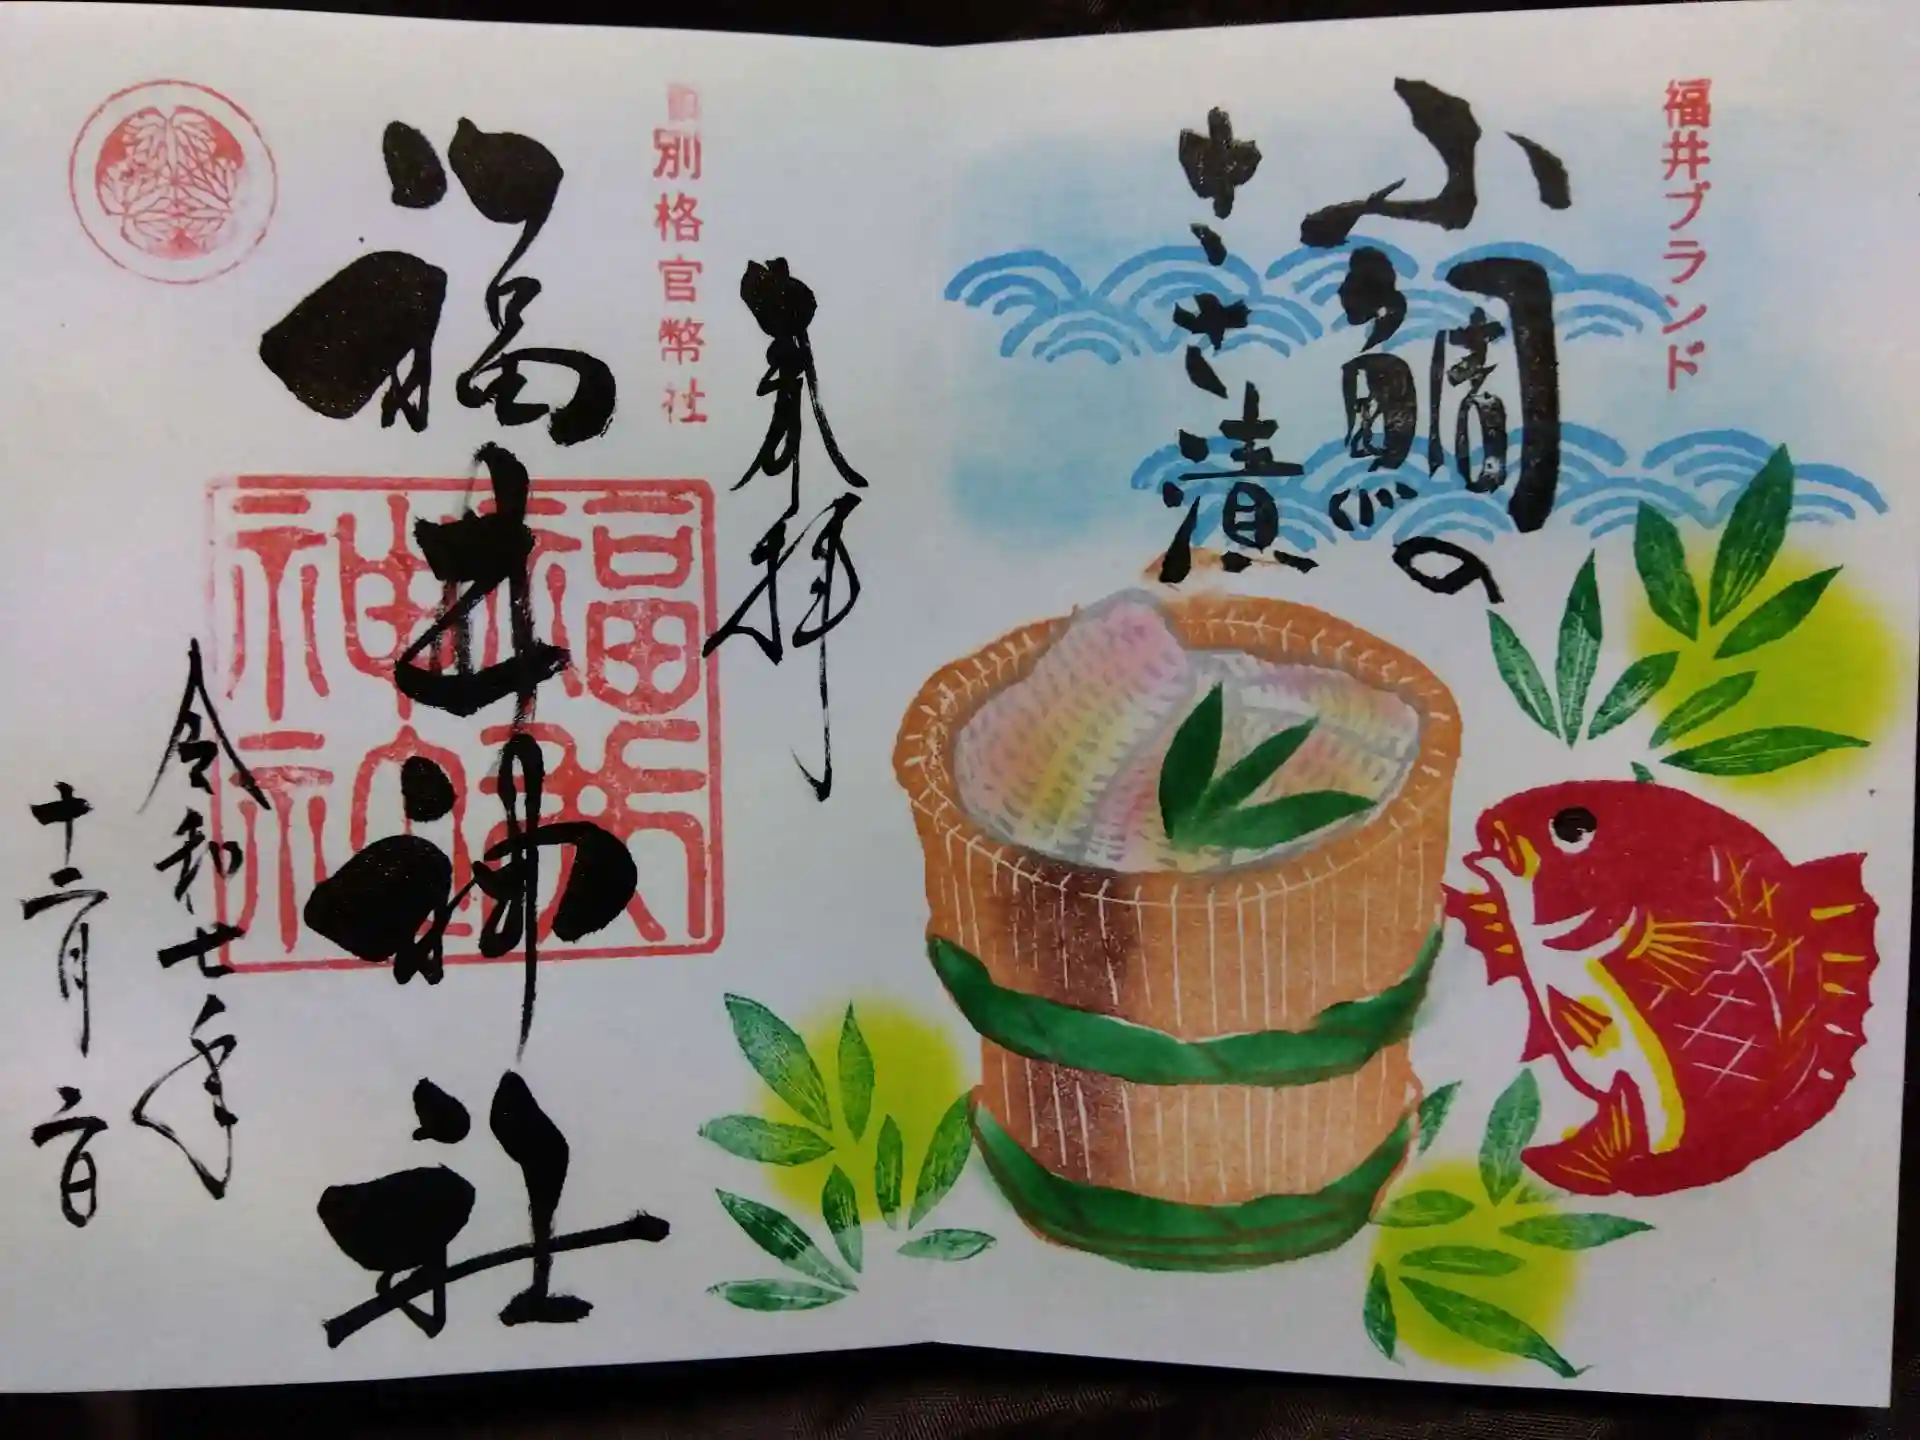 福井ブランド
小鯛の
ささ漬
奉拝
別格官幣社
福井神社
福井神社
令和七年
十二月二日